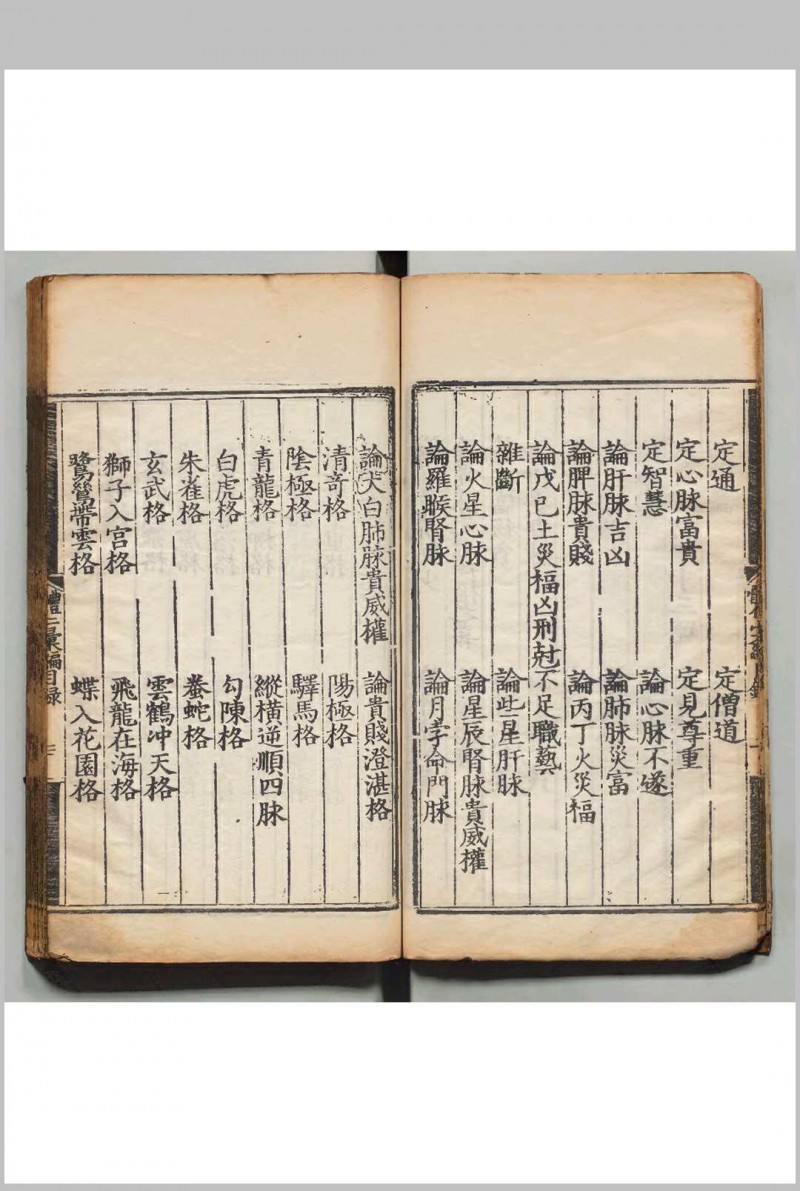 定通　定僧道
定心脉富貴　定見尊重
定智慧　論心脉不遂
論肝脉吉凶　論肺脉災富
論脾脉貴賤　論丙丁火災福
論戊己土災福凶刑尅不足職藝
雜斷　論些星肝脉
論火星心脉　論星辰腎脉貴威權
論羅睺腎脉　論月孛命門脉
論太白肺脉貴威權　論貴賤澄湛格
清奇格　陽極格
陰極格　驛馬格
青龍格　縱横逆順四脉
白虎格　勾陳格
朱雀格　螣蛇格
玄武格　雲鶴冲天格
獅子入宫格　飛龍在海格
鷺鷥帶雲格　蝶入花園格
彙編目録